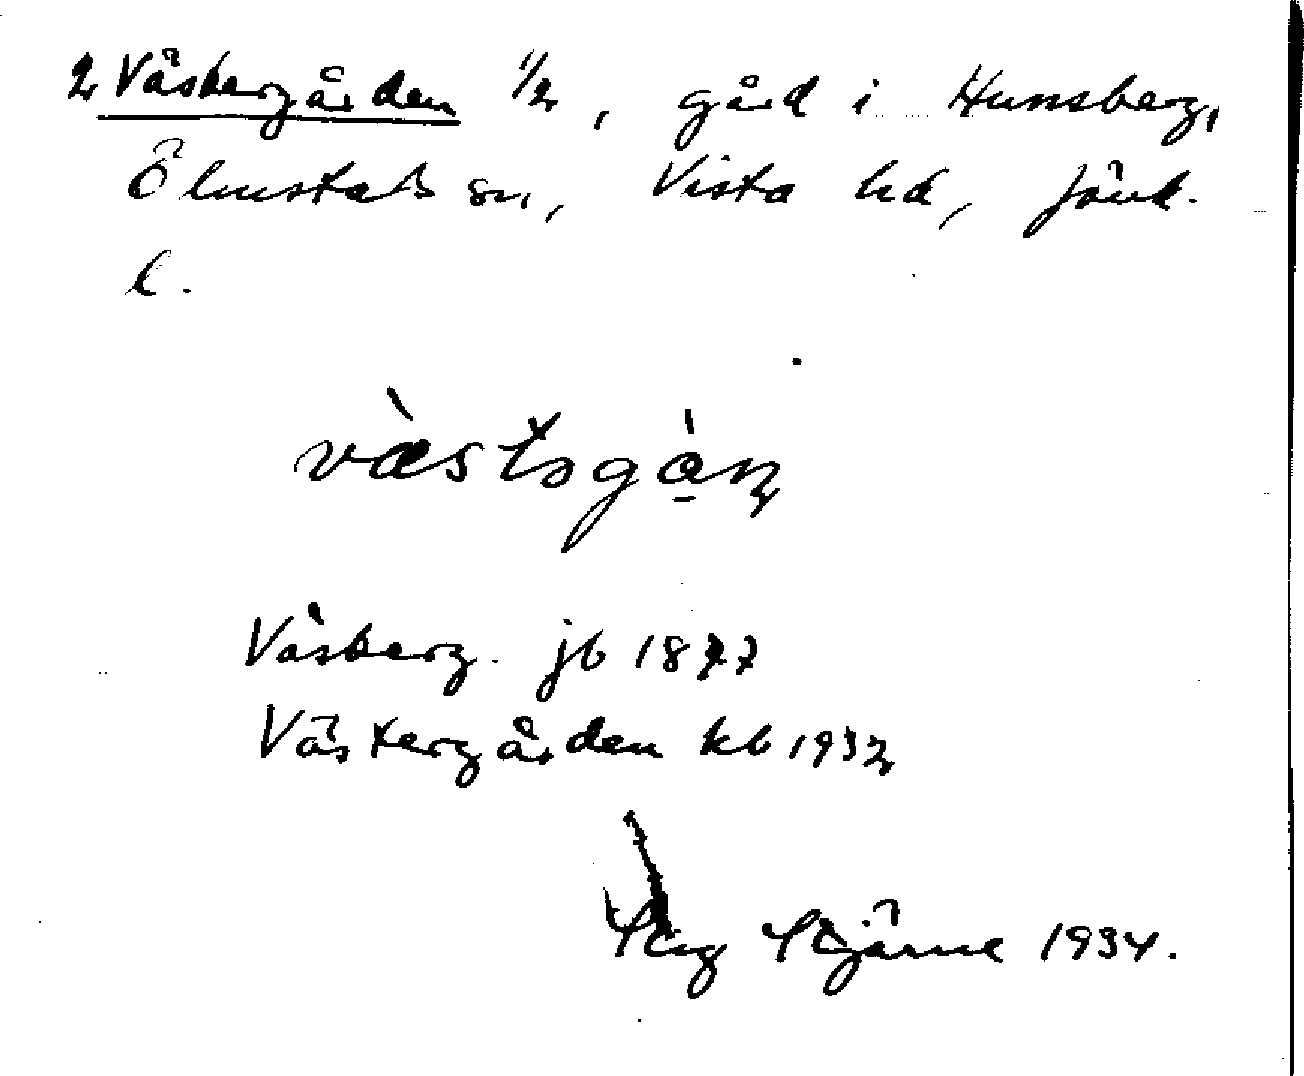 2 Västergården 1/2, gård i Hunsberg,
Ölmstads sn, Vista hd, Jönk.
l.
væ̀stsgàɳ
Västerg. jb 1877
Västergården kb 1932
Stig Stjärne 1934.